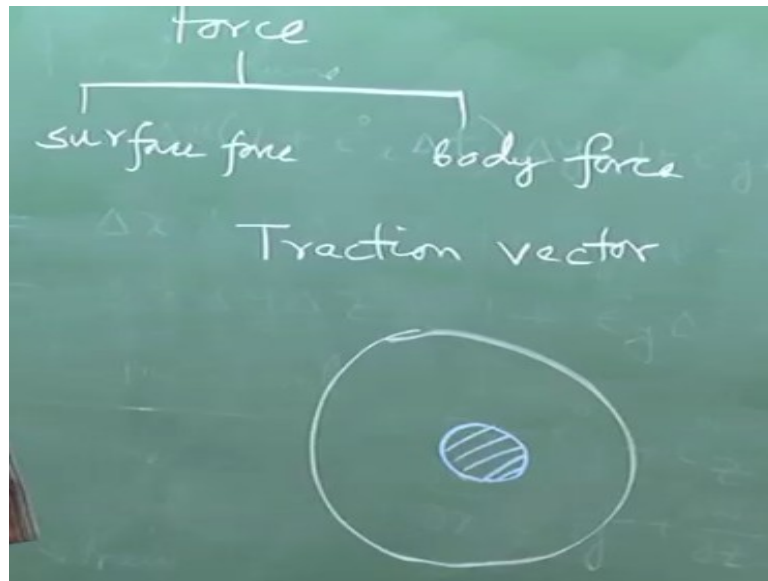 force
surface force body force
Traction vector